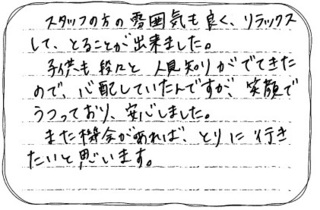 スタッフの方の雰囲気も良く、リラックス
して、とることが出来ました。
子供も段々と人見知りがでてきた
ので、心配していたんですが、笑顔で
うつっており、安心しました。
また機会があれば、とりに行き
たいと思います。